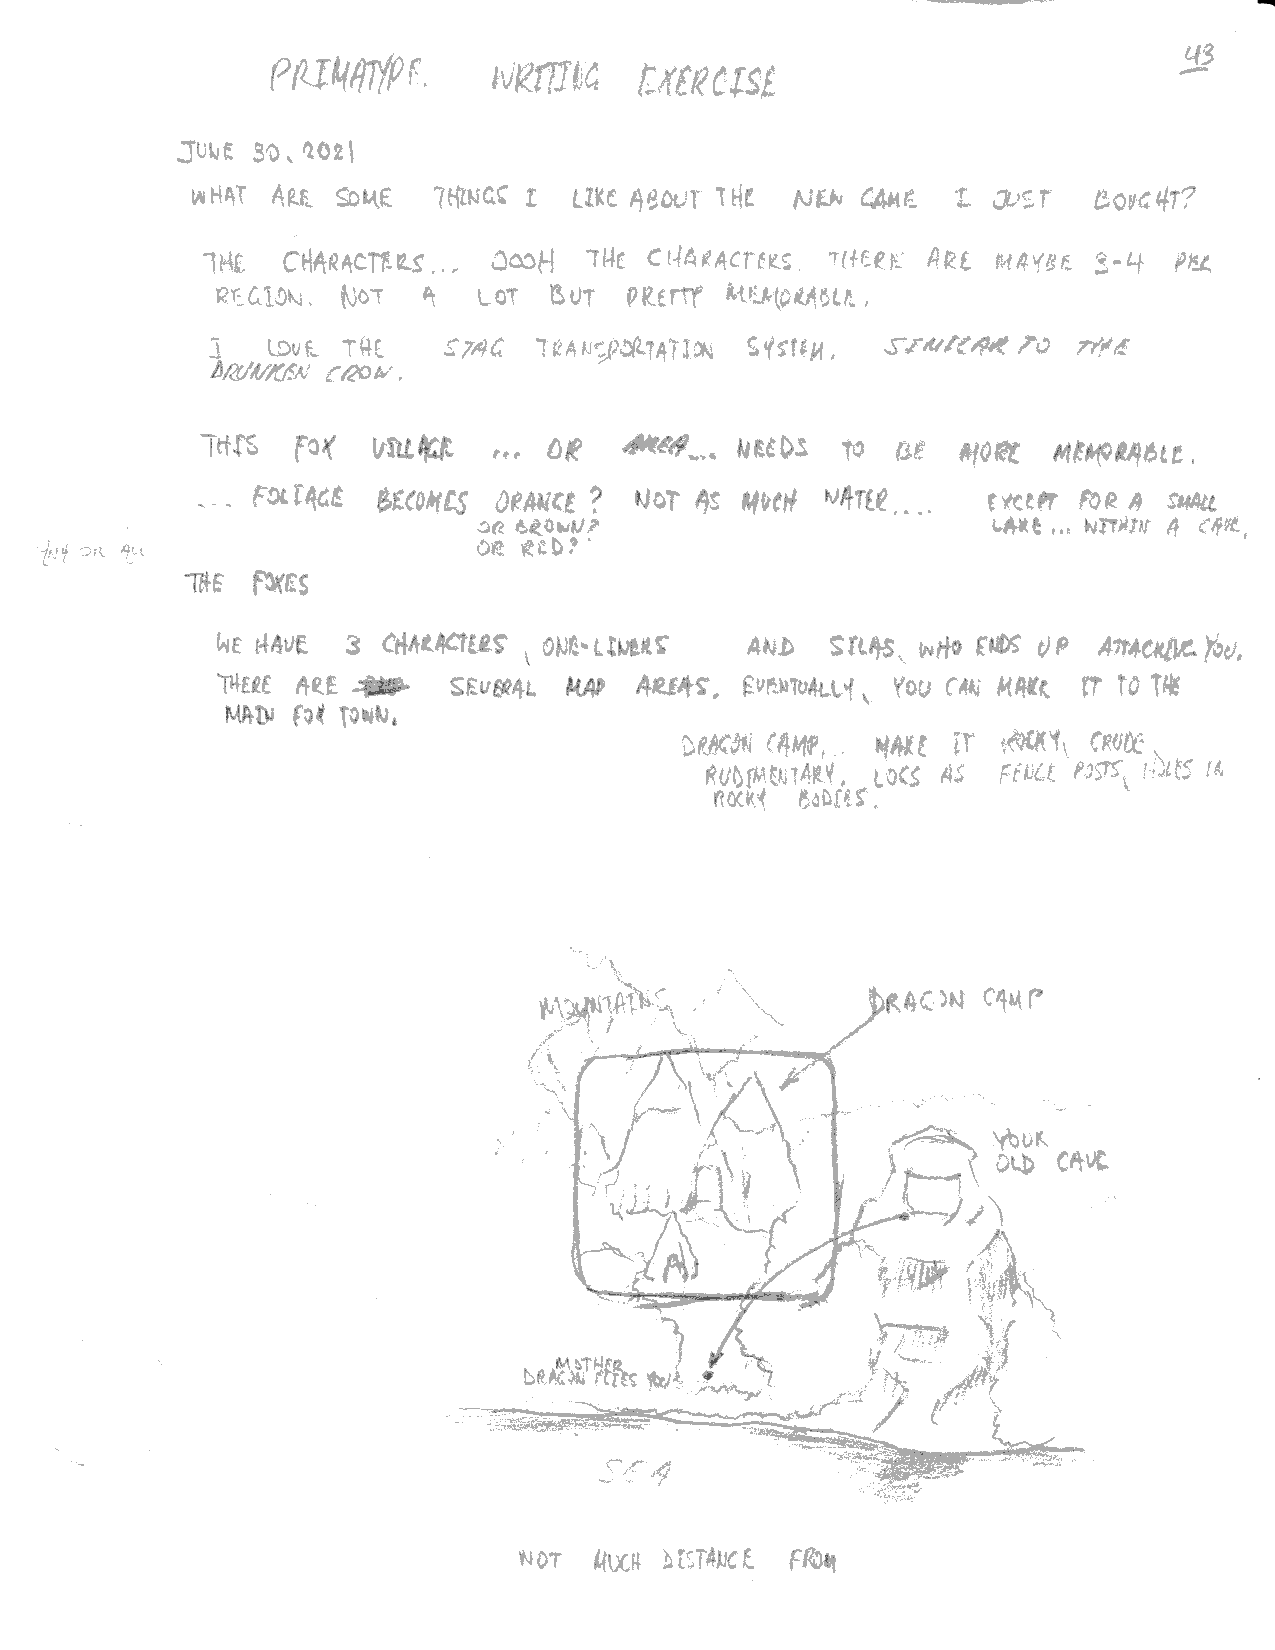 43
PRIMATYPE. WRITING EXERCISE
JUNE 30, 2021
WHAT ARE SOME THINGS I LIKE ABOUT THE NEW GAME I JUST BOUGHT?
THE CHARACTERS... OOOH THE CHARACTERS. THERE ARE MAYBE 3-4 PER
REGION. NOT A LOT BUT PRETTY MEMORABLE.
I LOVE THE STAG TRANSPORTATION SYSTEM. SIMILAR TO THE
DRUNKEN CROW.
THIS FOX VILLAGE ... OR AREA... NEEDS TO BE MORE MEMORABLE.
... FOLIAGE BECOMES ORANGE? NOT AS MUCH WATER.... EXCEPT FOR A SMALL
OR BROWN? LAKE... WITHIN A CAVE.
ANY OR ALL OR RED?
THE FOXES
WE HAVE 3 CHARACTERS, ONE-LINERS AND SILAS, WHO ENDS UP ATTACKING YOU.
THERE ARE SEVERAL MAP AREAS. EVENTUALLY, YOU CAN MAKE IT TO THE
MAIN FOX TOWN.
DRAGON CAMP... MAKE IT ROCKY, CRUDE,
RUDIMENTARY. LOGS AS FENCE POSTS, HOLES IN
ROCKY BODIES.
MOUNTAINS DRAGON CAMP
YOUR
OLD CAVE
MOTHER
DRAGON FLIES YOU
SEA
NOT MUCH DISTANCE FROM